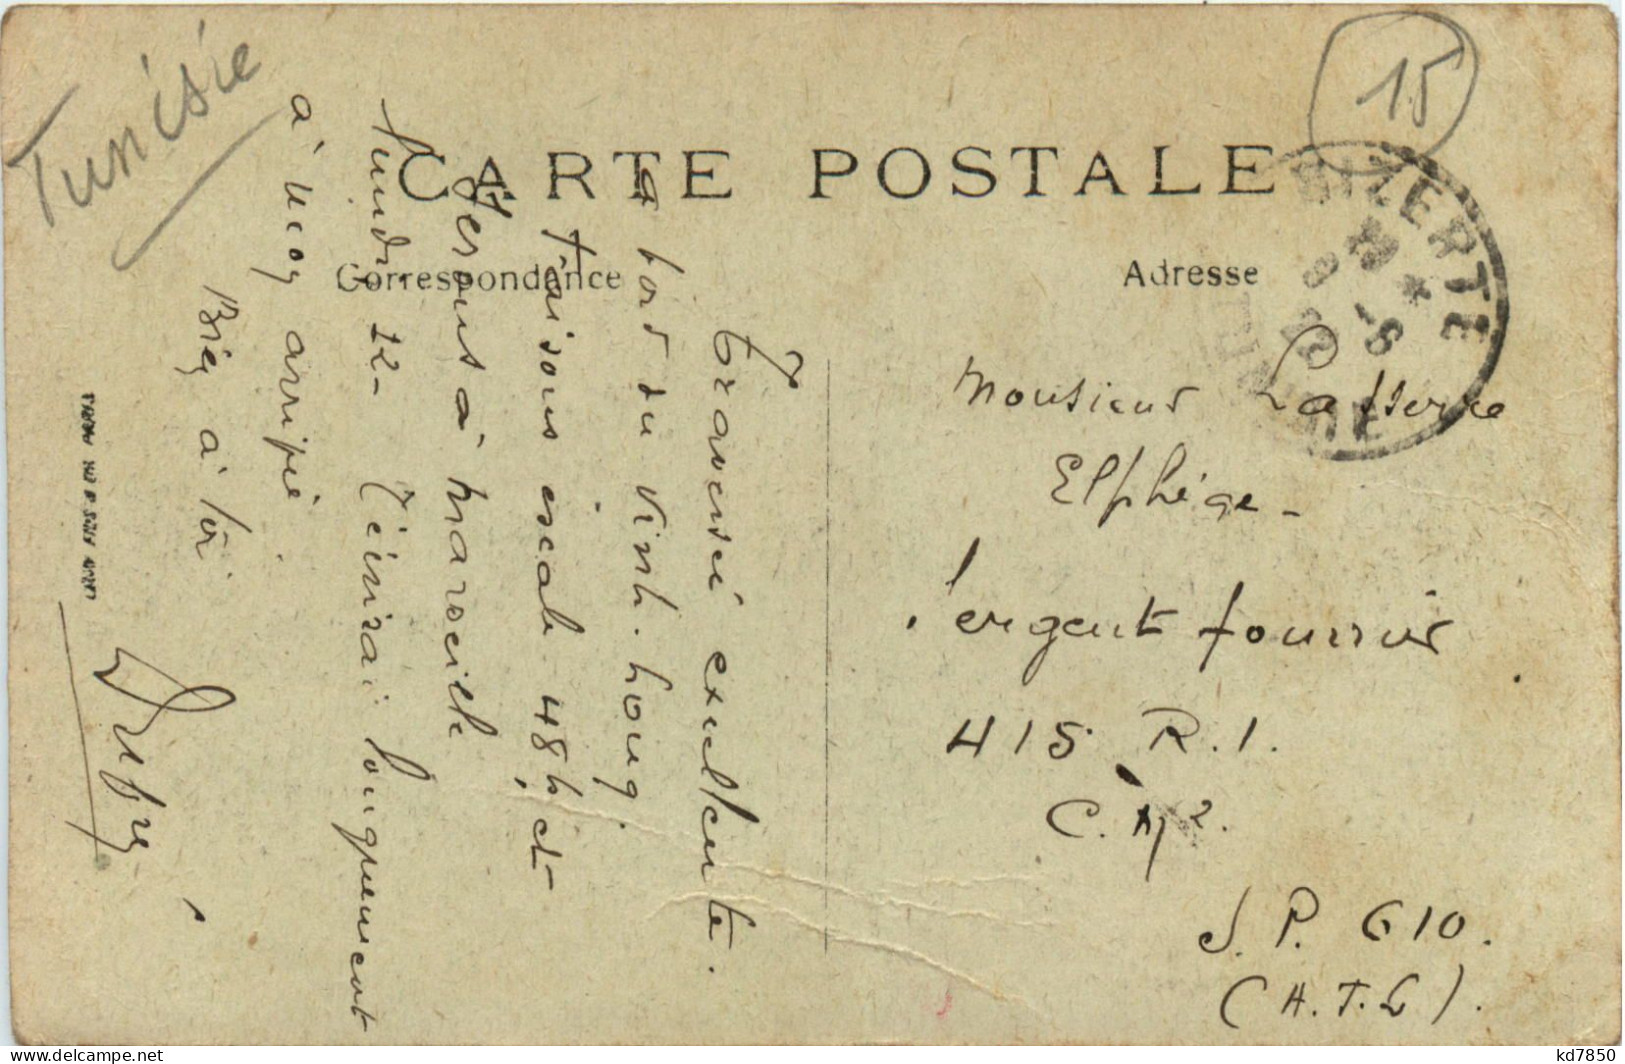 Tunisie
15
CARTE POSTALE
Correspondance
Adresse
BIZERTE
Traversée excellente.
a bord du Vinh. Long.
faisons escale 48h et
serons à Marseille
lundi 12- T'écrirai longuement
à mon arrivée.
Bien à toi
Monsieur Lasserre
Elphège -
Sergent fourrier
415 R.I.
C.M².
S.P. 610.
(A.T.L).
kd7850